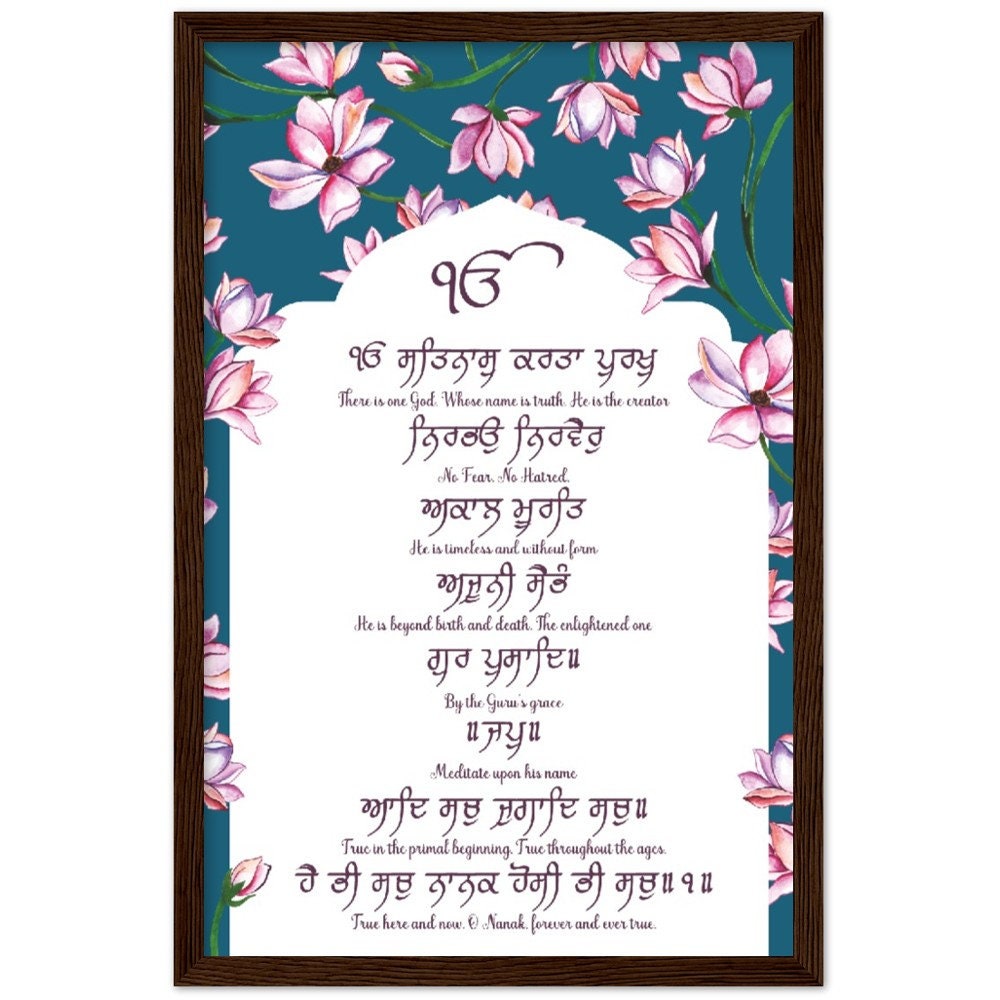 ੴ
ੴ ਸਤਿਨਾਮੁ ਕਰਤਾ ਪੁਰਖੁ
There is one God. Whose name is truth. He is the creator
ਨਿਰਭਉ ਨਿਰਵੈਰੁ
No Fear. No Hatred.
ਅਕਾਲ ਮੂਰਤਿ
He is timeless and without form
ਅਜੂਨੀ ਸੈਭੰ
He is beyond birth and death. The enlightened one
ਗੁਰ ਪ੍ਰਸਾਦਿ॥
By the Guru's grace
॥ਜਪੁ॥
Meditate upon his name
ਆਦਿ ਸਚੁ ਜੁਗਾਦਿ ਸਚੁ॥
True in the primal beginning. True throughout the ages.
ਹੈ ਭੀ ਸਚੁ ਨਾਨਕ ਹੋਸੀ ਭੀ ਸਚੁ॥੧॥
True here and now. O Nanak, forever and ever true.